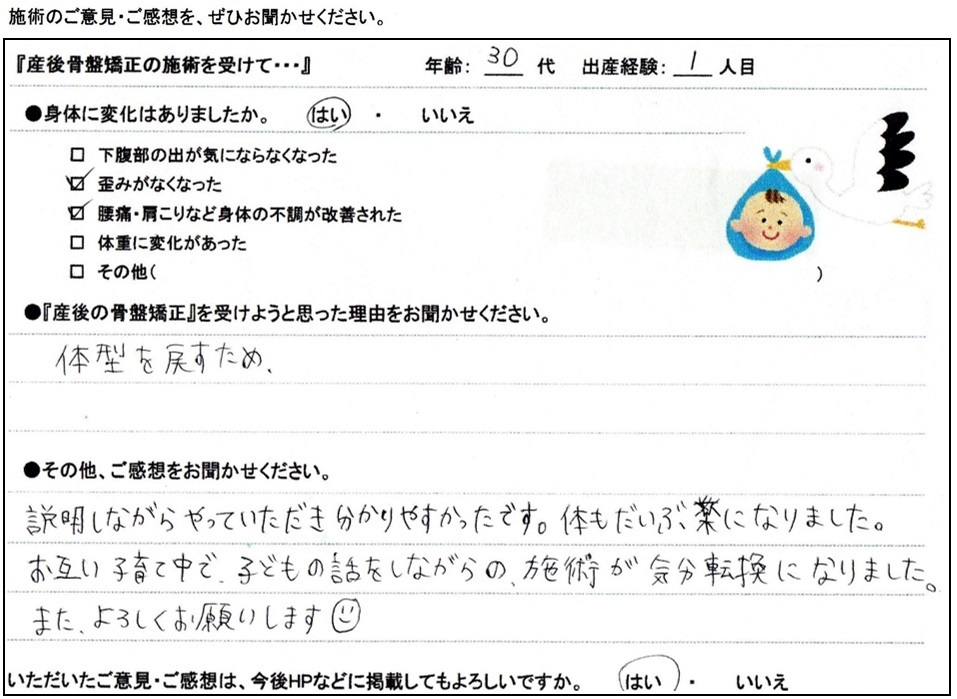 施術のご意見・ご感想を、ぜひお聞かせください。
『産後骨盤矯正の施術を受けて・・・』 年齢: 30 代 出産経験: 1 人目
●身体に変化はありましたか。 はい ・ いいえ
□ 下腹部の出が気にならなくなった
☑ 歪みがなくなった
☑ 腰痛・肩こりなど身体の不調が改善された
□ 体重に変化があった
□ その他( )
●『産後の骨盤矯正』を受けようと思った理由をお聞かせください。
体型を戻すため、
●その他、ご感想をお聞かせください。
説明しながらやっていただき分かりやすかったです。体もだいぶ、楽になりました。
お互い子育て中で、子どもの話をしながらの、施術が気分転換になりました。
また、よろしくお願いします☺
いただいたご意見・ご感想は、今後HPなどに掲載してもよろしいですか。 はい ・ いいえ